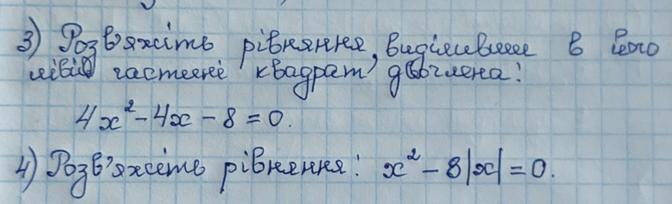 3) Розв'яжіть рівняння, виділивши в його
лівій частині квадрат двочлена:
4x² - 4x - 8 = 0.
4) Розв'яжіть рівняння: x² - 8|x| = 0.